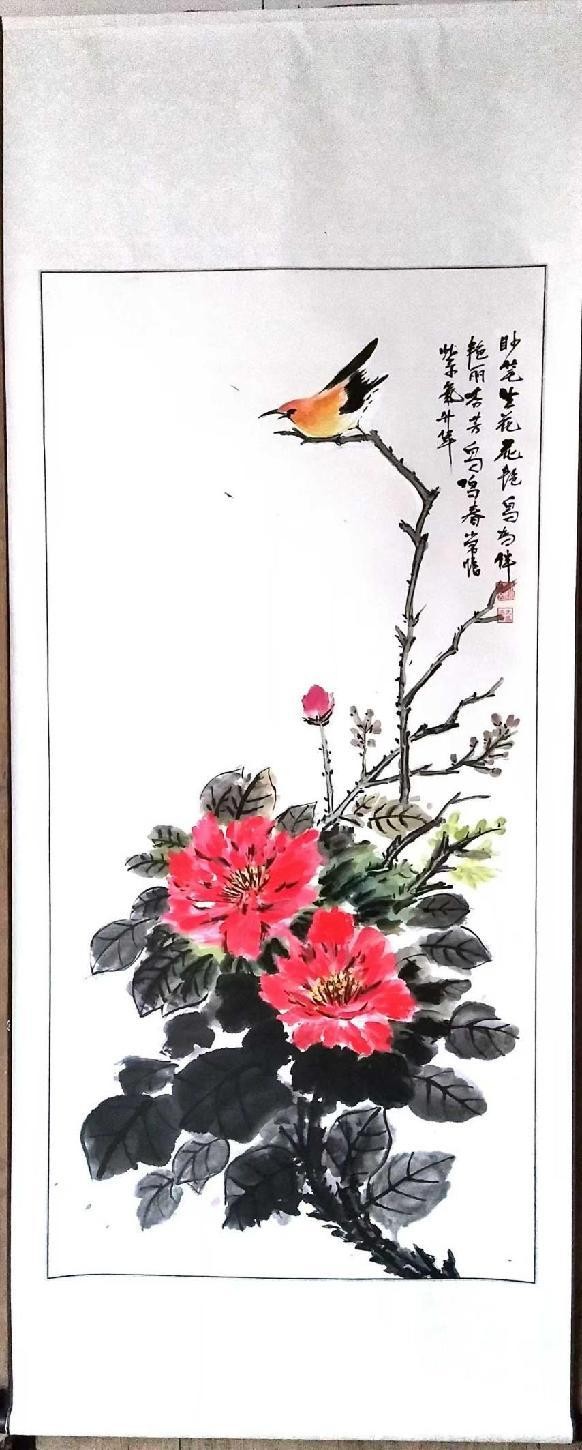 妙笔生花花艳鸟为伴
艳丽吝芳鸟鸣春常惜
紫气升华